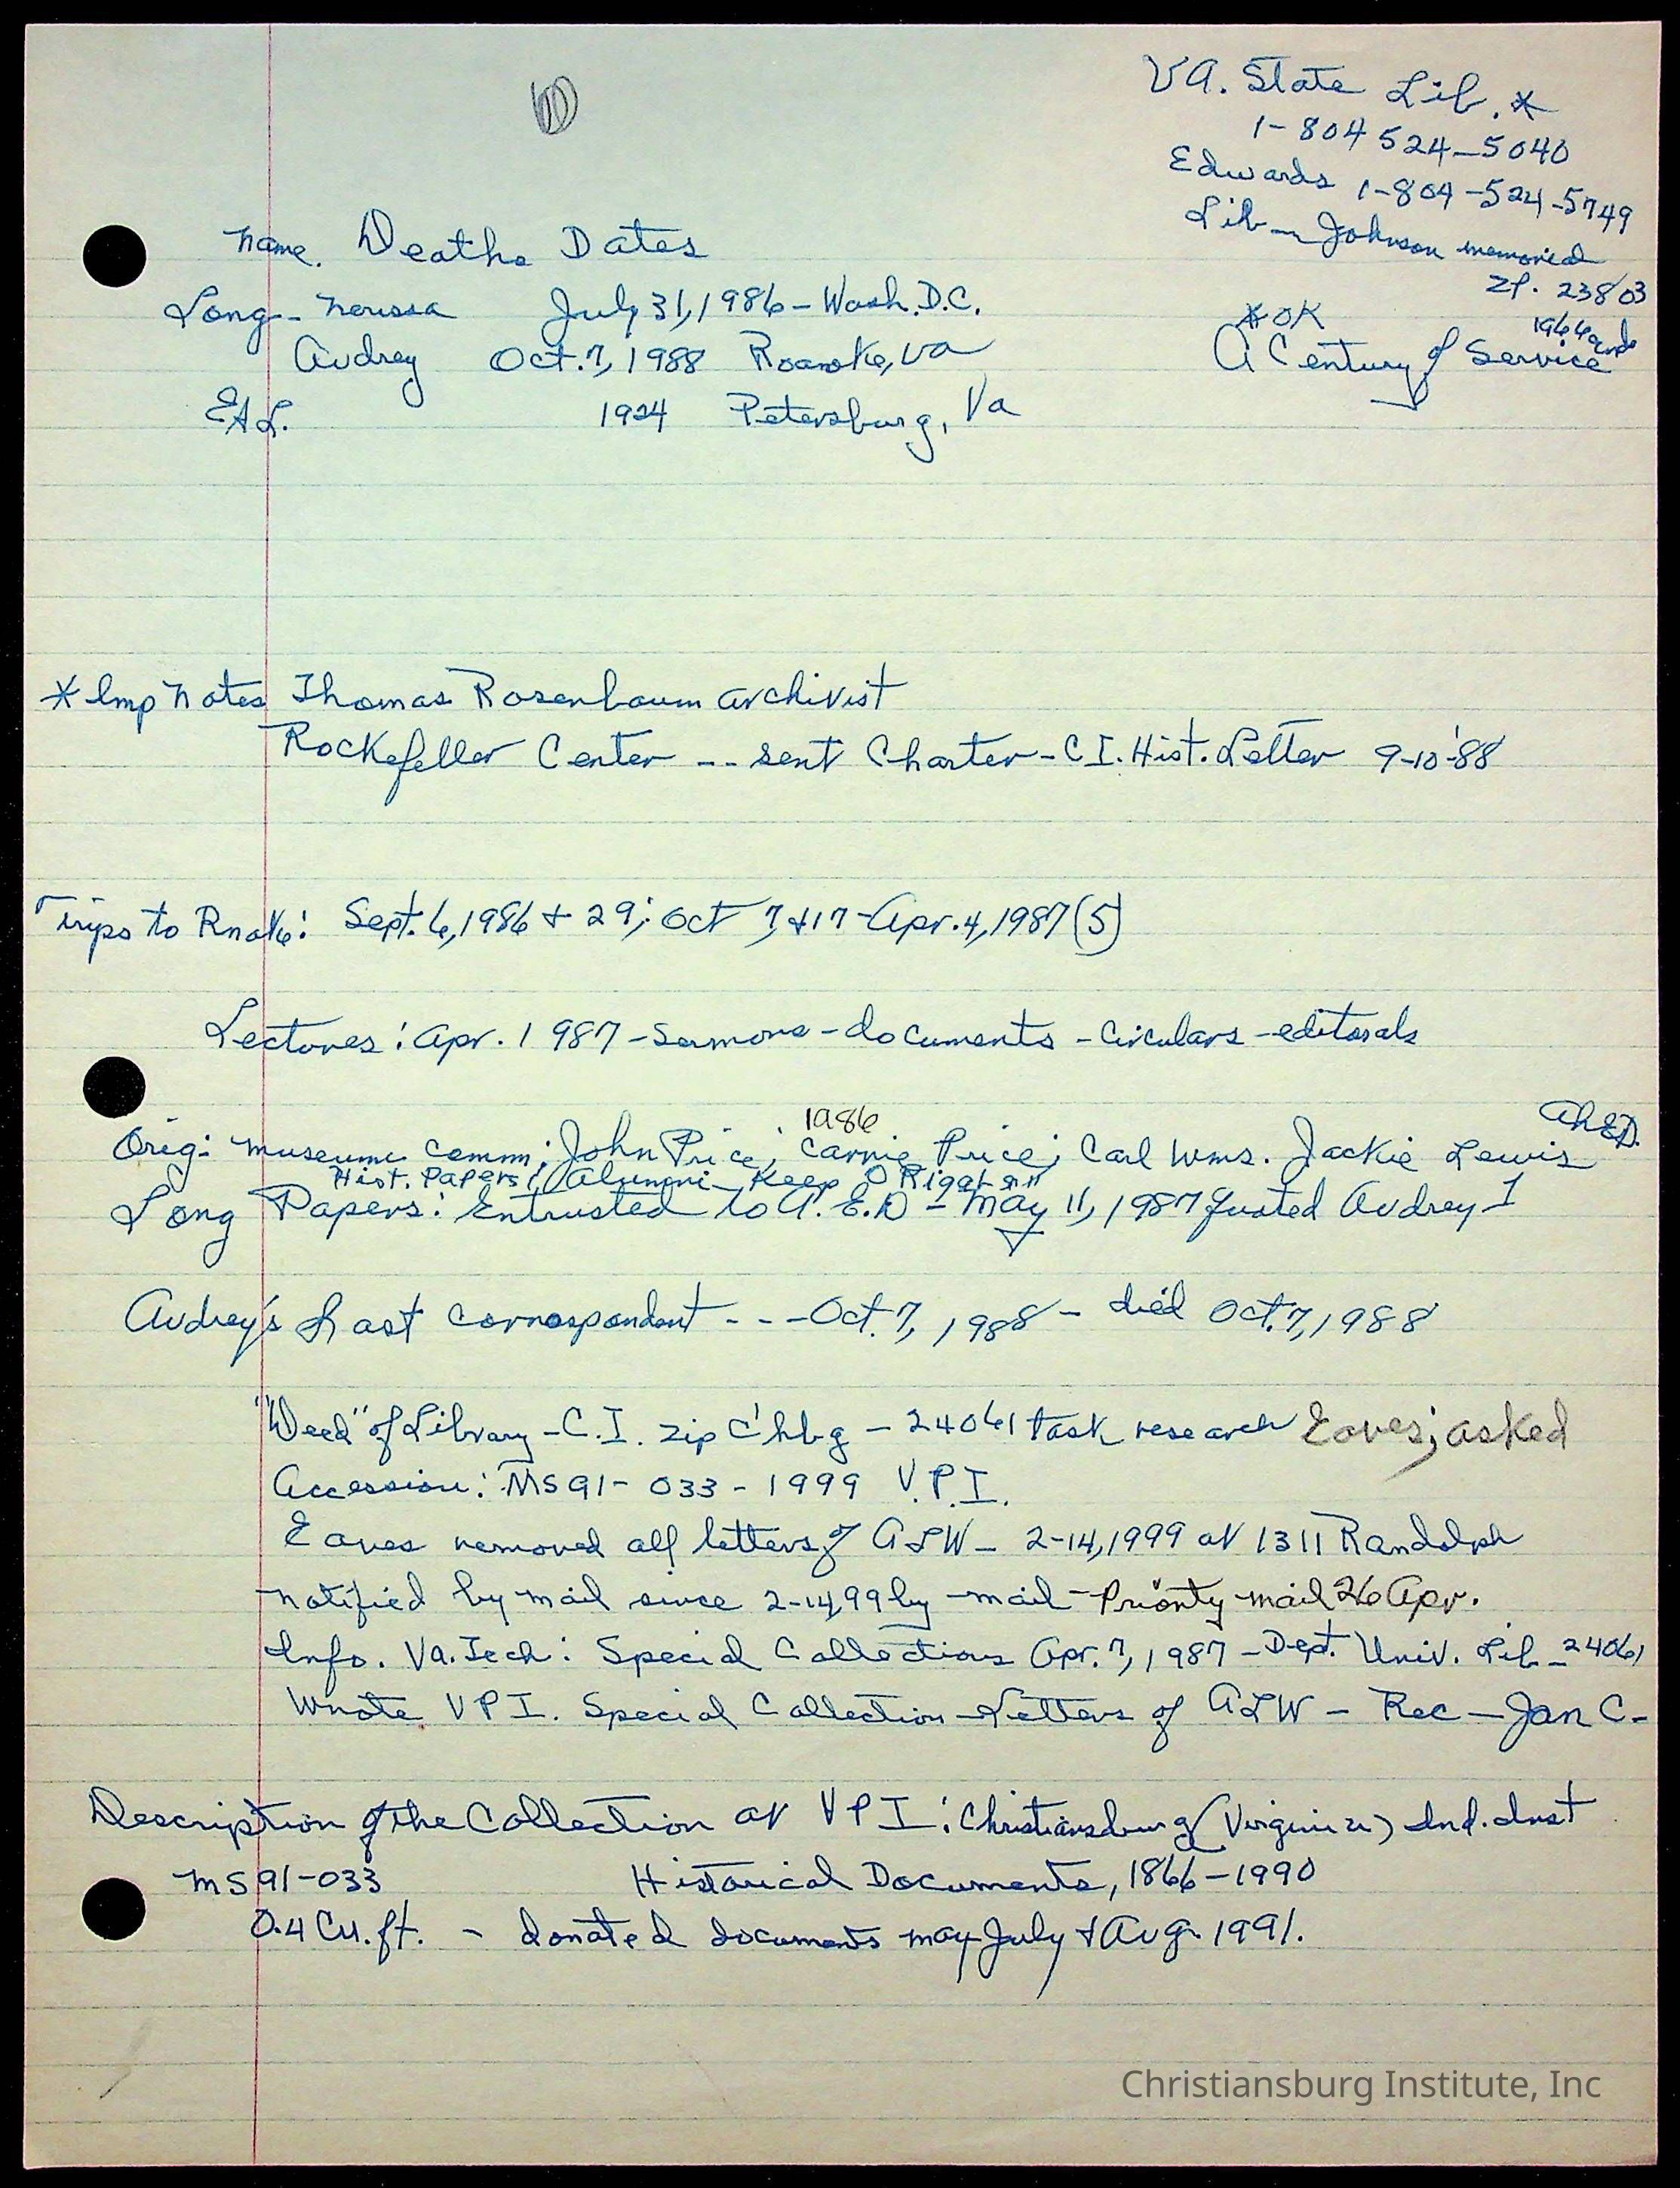 VA. State Lib. *
1-804 524-5040
Edwards 1-804-524-5749
Lib - Johnson memorial
Zp. 23803
* OK
A Century of Service
Name. Deaths Dates
Long - Nerissa July 31, 1986 - Wash. D.C.
Audrey Oct. 7, 1988 Roanoke, Va
EAL. 1924 Petersburg, Va
* Imp Notes Thomas Rosenbaum archivist
Rockefeller Center -- sent Charter - C I. Hist. Letter 9-10-'88
Trips to Rnoke: Sept. 6, 1986 + 29; Oct 7, +17 - Apr. 4, 1987 (5)
Lectures: Apr. 1987 - Sermons - documents - circulars - editorals
1986
Orig: museum comm; John Price; Carrie Price; Carl Wms. Jackie Lewis
Hist. Papers; Alumni - Keep O Right on"
Long Papers: Entrusted to A. E. D - May 11, 1987 quoted Audrey I
Audrey's Last correspondent - - - Oct. 7, 1988 - died Oct. 7, 1988
"Deed" of Library - C. I. zip C'hbg - 24061 task research Eaves; asked
Accession: MS91- 033 - 1999 V. P. I.
Eaves removed all letters of ALW - 2-14, 1999 at 1311 Randolph
notified by mail since 2-14, 99 by - mail - Priority mail 26 Apr.
Info. Va. Tech: Special Collections Apr. 7, 1987 - Dept. Univ. Lib - 24061
Wrote V P I. Special Collection - Letters of ALW - Rec - Jan C -
Description of the Collection at V P I: Christiansburg (Virginia) Ind. Inst
MS91-033 Historical Documents, 1866-1990
0.4 Cu. ft. - donated documents may July + Aug. 1991.
Christiansburg Institute, Inc